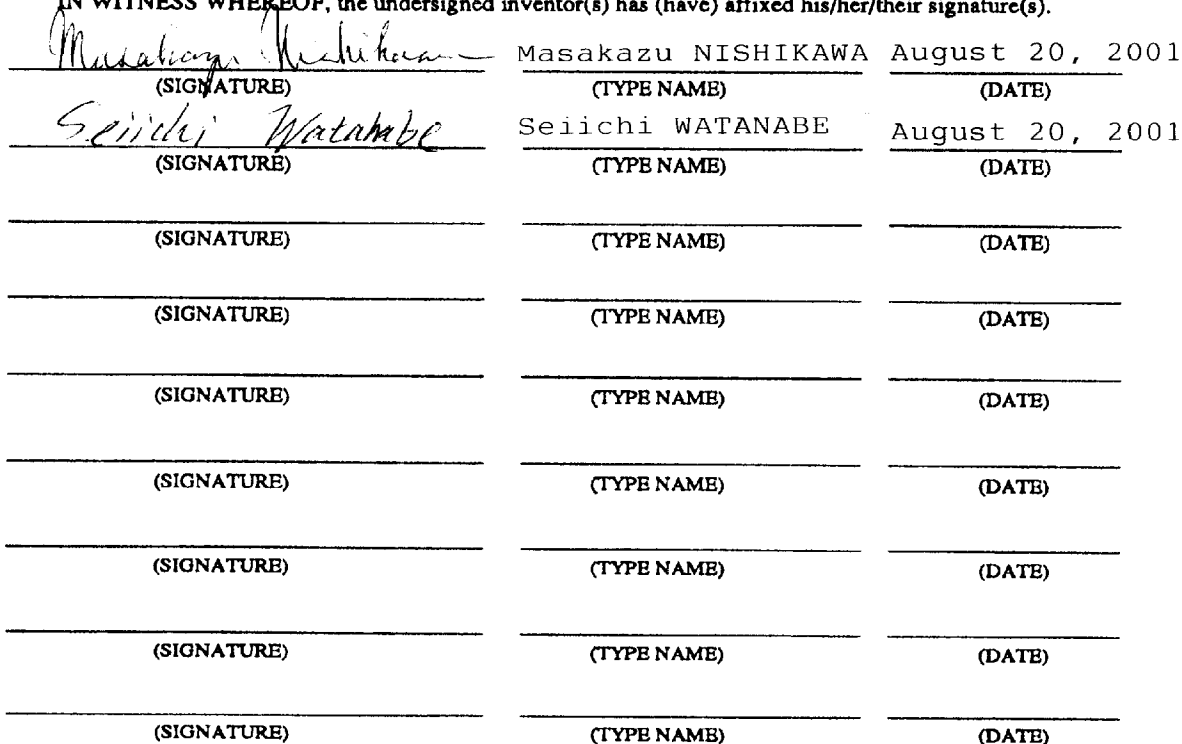 IN WITNESS WHEREOF, the undersigned inventor(s) has (have) affixed his/her/their signature(s).
Masakazu Nishikawa Masakazu NISHIKAWA August 20, 2001
(SIGNATURE) (TYPE NAME) (DATE)
Seiichi Watanabe Seiichi WATANABE August 20, 2001
(SIGNATURE) (TYPE NAME) (DATE)
(SIGNATURE) (TYPE NAME) (DATE)
(SIGNATURE) (TYPE NAME) (DATE)
(SIGNATURE) (TYPE NAME) (DATE)
(SIGNATURE) (TYPE NAME) (DATE)
(SIGNATURE) (TYPE NAME) (DATE)
(SIGNATURE) (TYPE NAME) (DATE)
(SIGNATURE) (TYPE NAME) (DATE)